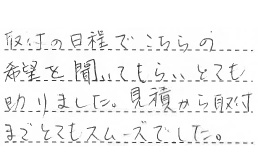 取付の日程でこちらの
希望を聞いてもらいとても
助りました。見積から取付
までとてもスムーズでした。